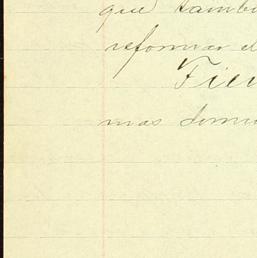 que tambi
reformar el
Fir
mas